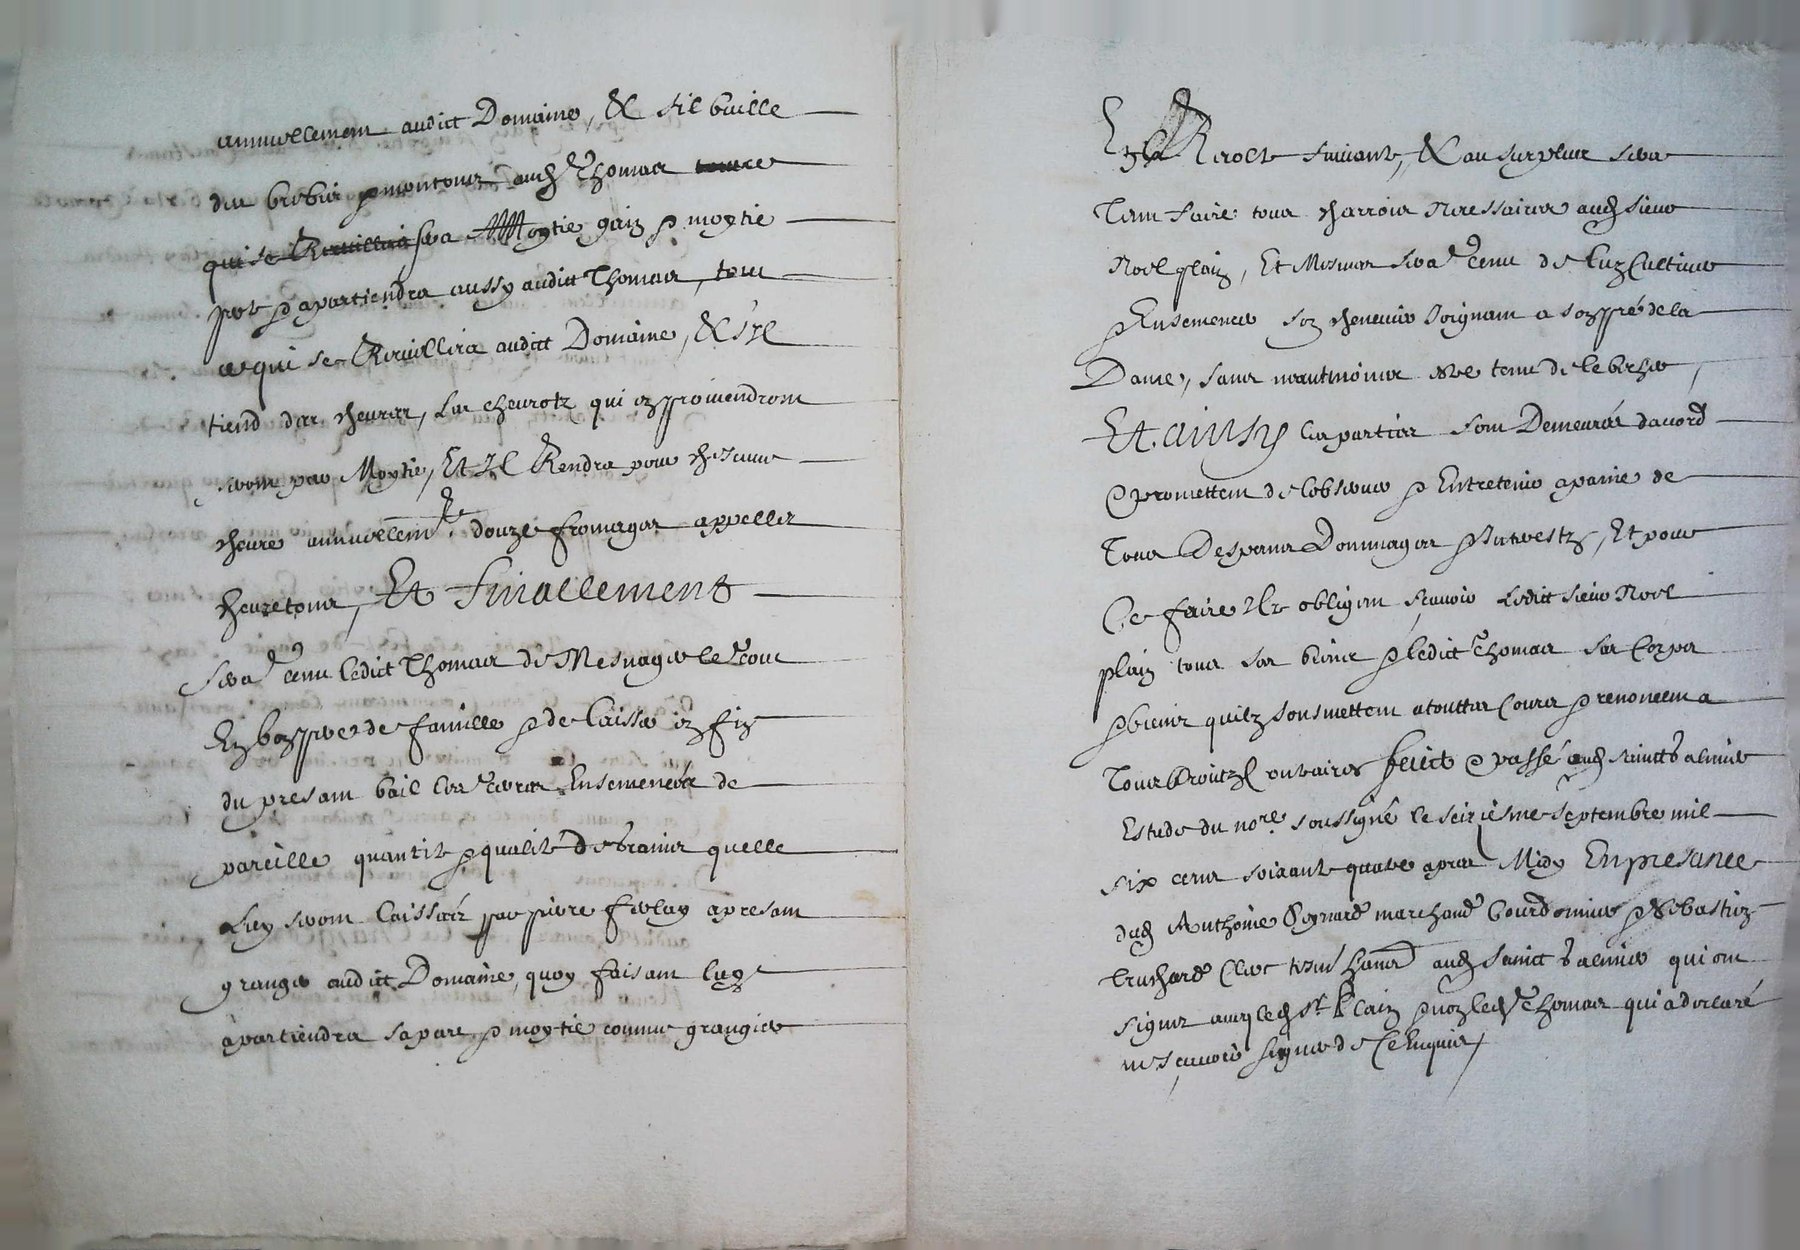 annuellement audict Domaine, & sil baille
des brebis & moutons aud Thomas
qui se Recuillira sera Moytie gain & moytie
perte & apartiendra aussy audict Thomas, tout
ce qui se Recuillira audict Domaine, & s'il
tiend des chevres, les chevrotz qui en proviendront
seront par Moytie, Et Il Rendra pour chescune
chevre annuellemt douze fromages appelles
chevretons, Et finallement
sera tenu ledict Thomas de Mesnager le tout
En bon pere de famille & de laisser en fin
du presant bail les terres Ensemencés de
pareille quantite & qualite de grains quelle
Luy seront laissées par pierre a presant
granger audict Domaine, quoy faisant luy
apartiendra sa part & moytie comme granger
En la Recolte suivante, & au surplus sera
Tenu faire tous charrois Necessaires aud sieur
Noel plain, Et Mesmes sera tenu de luy Cultiver
& Ensemencer son chenevier joignant a son pré de la
Dame, sans neantmoings estre tenu de le becher,
Et ainsy les parties sont Demeurés dacord
& promettent de lobserver & Entretenir a paine de
Tous Despens Dommages & Interestz, Et pour
Ce faire Ilz obligent scavoir Ledict sieur Noel
plain tous ses biens & ledict Thomas ses Corps
& biens quilz sousmettent a touttes Cours & renoncent a
Tous Droictz contraires faict & passé aud sainct Galmier
Estude du nore soussigné le seiziesme Septembre mil
six cens soixante quatre apres Midy En presance
dud Anthoine marchand & Sebastien
Cler aud Sainct Galmier qui ont
signes avec led sr Plain & non led Thomas qui a declaré
ne scavoir signer de ce Enquis